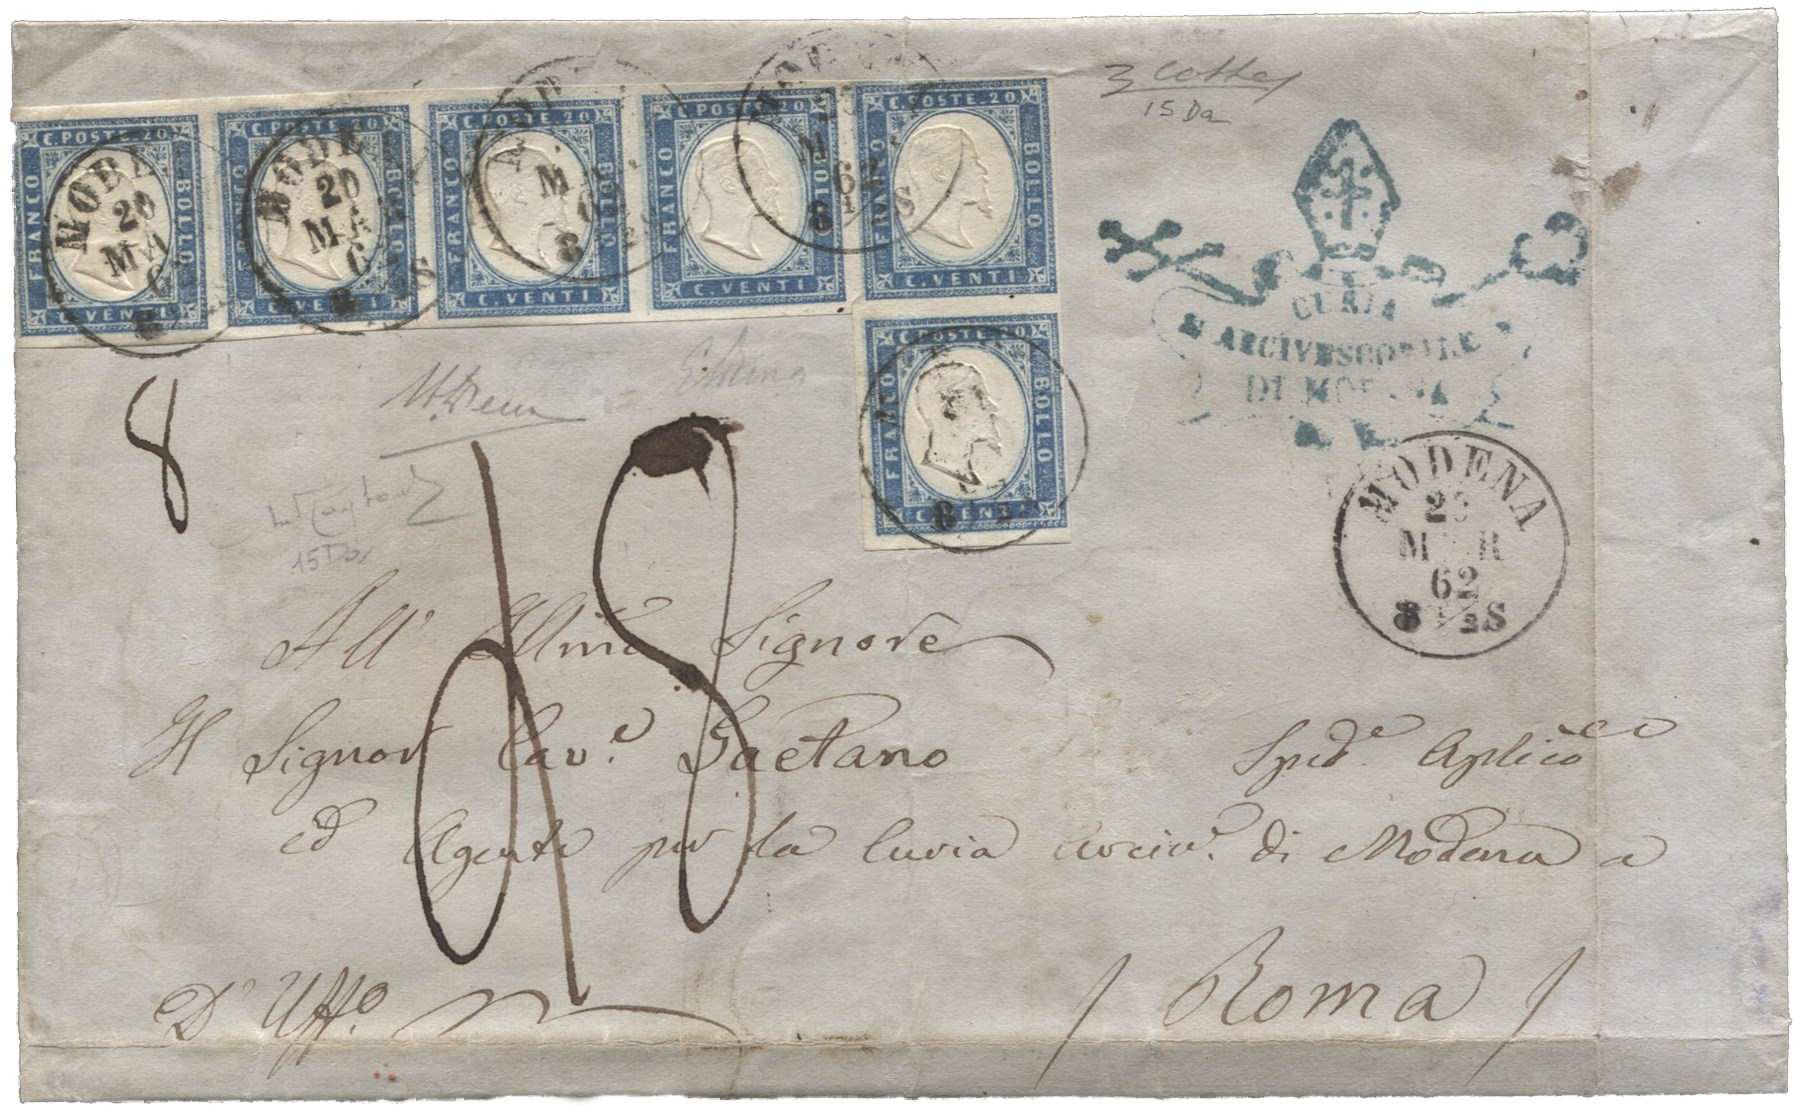 C. POSTE. 20
FRANCO
BOLLO
C. VENTI
C. POSTE. 20
FRANCO
BOLLO
C. VENTI
C. POSTE. 20
FRANCO
BOLLO
C. VENTI
C. POSTE. 20
FRANCO
BOLLO
C. VENTI
C. POSTE. 20
FRANCO
BOLLO
C. VENTI
C. POSTE. 20
FRANCO
BOLLO
C. VENTI
MODENA
20
MAR
62
8
15 Da
CURIA
ARCIVESCOVILE
DI MODENA
MODENA
20
MAR
62
8 1/2 S
8
15 Da
All' Illmo Signore
Il Signor Cav.e Gaetano
ed Agente per la Curia Arciv.e di Modena a
D'Uffo.
Roma